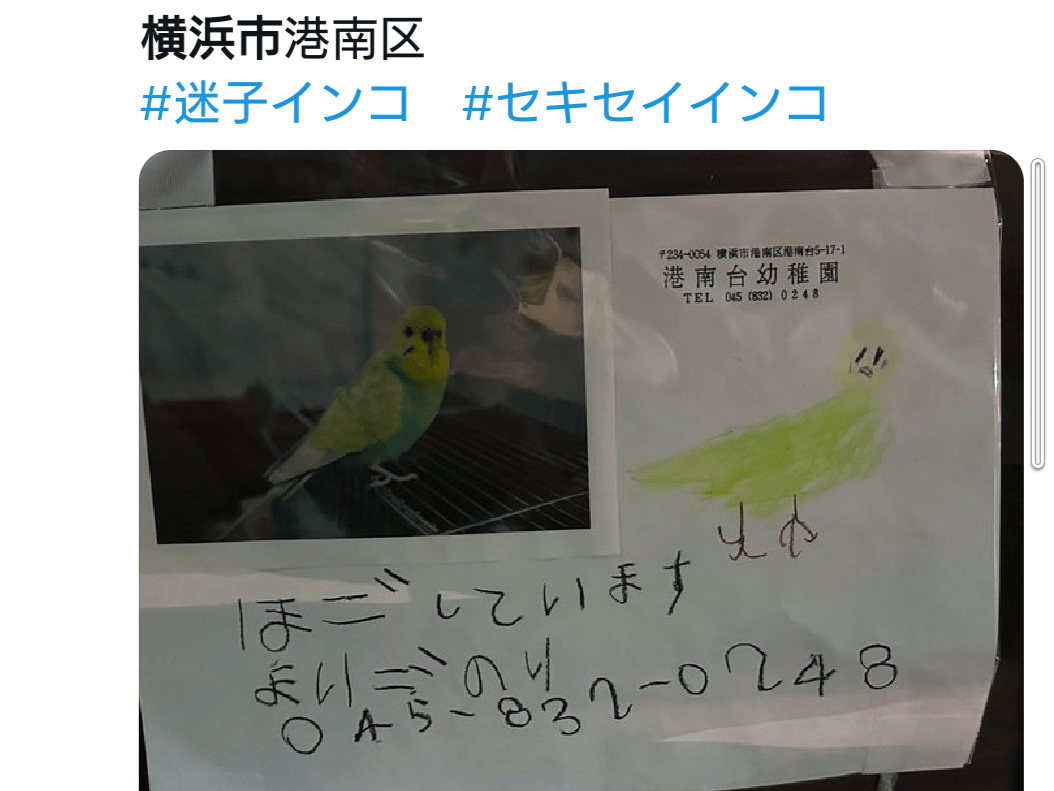 横浜市港南区
#迷子インコ　#セキセイインコ
〒234-0054 横浜市港南区港南台5-17-1
港南台幼稚園
TEL 045 (832) 0248
ほごしています
まりごのり
045-832-0248